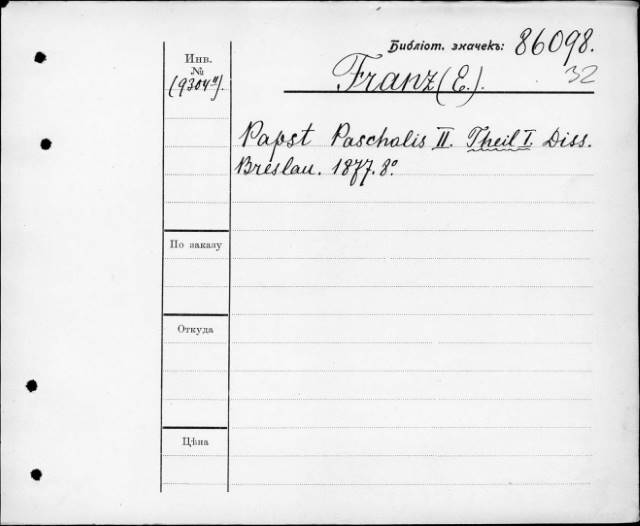 Библіот. значекъ: 86098.
32
Инв.
№
(9304").
Franz (E.).
Papst Paschalis II. Theil I. Diss.
Breslau. 1877. 8°.
По заказу
Откуда
Цѣна